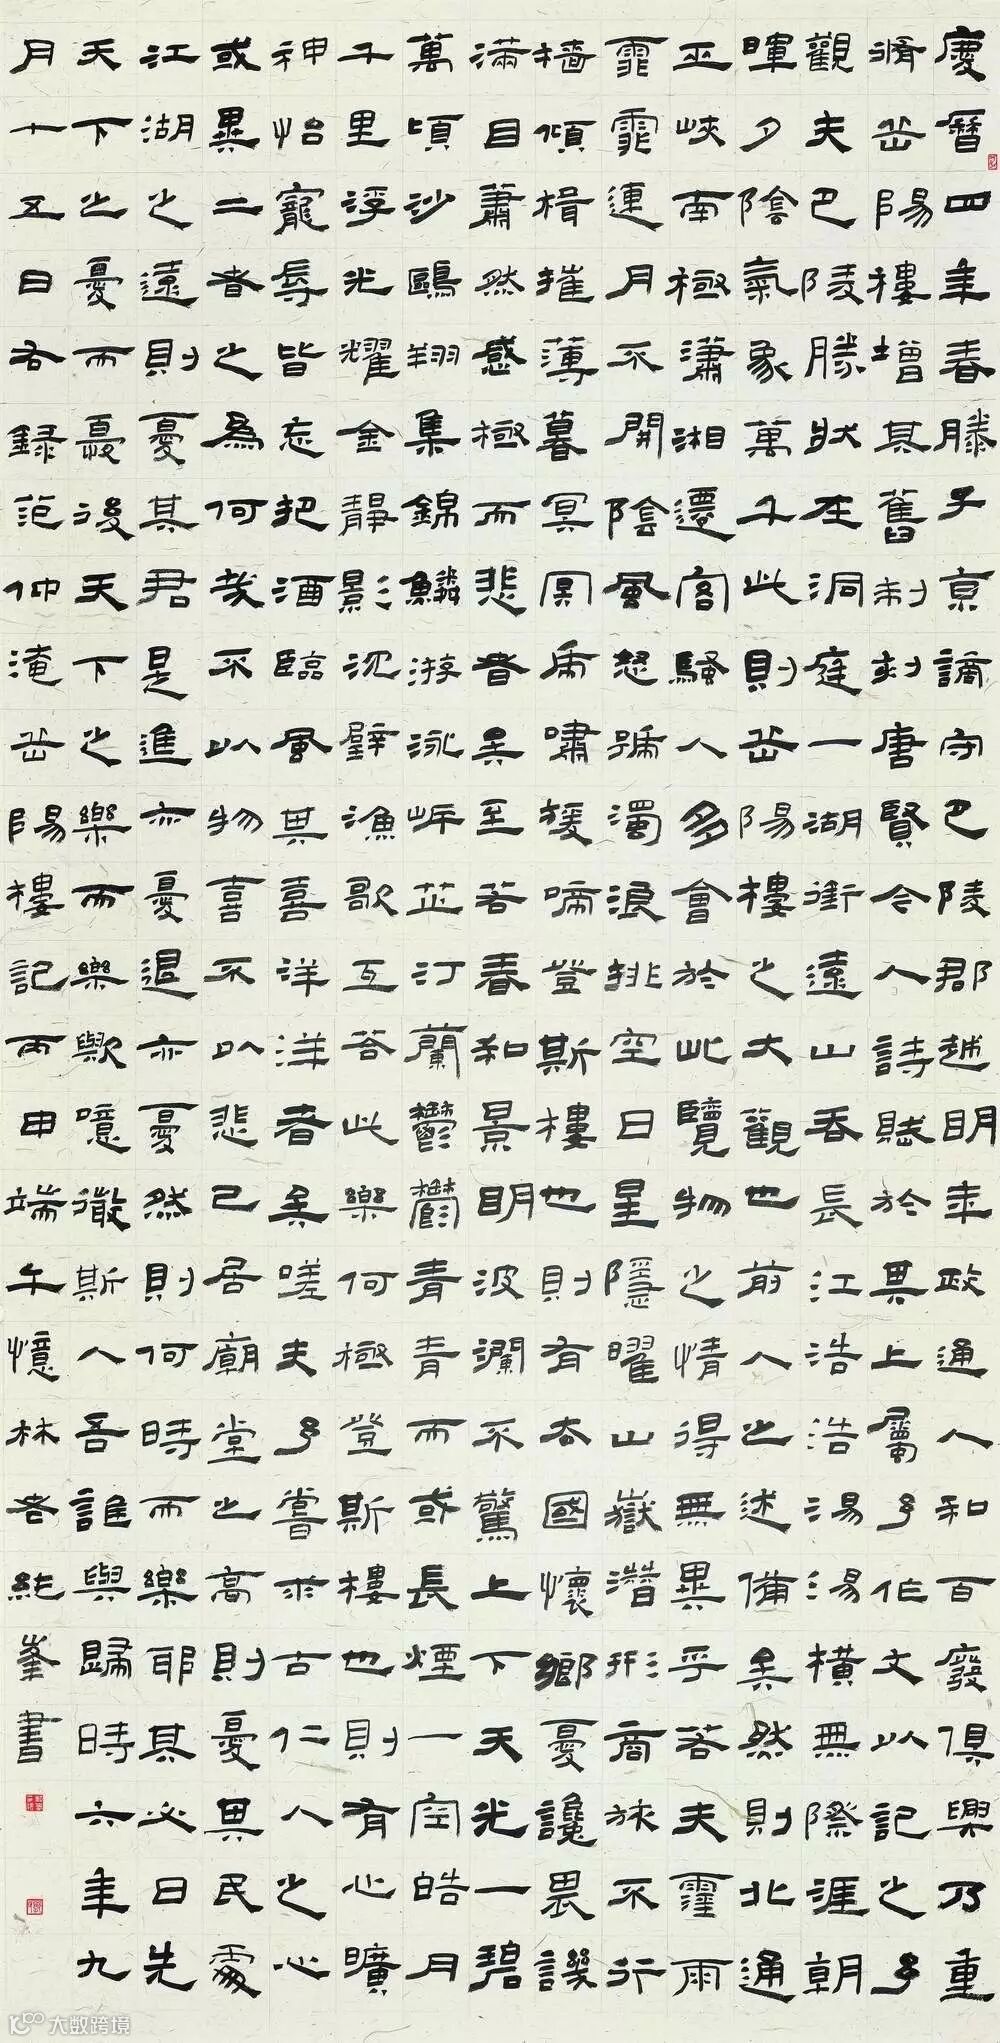 慶曆四年春滕子京謫守巴陵郡越明年政通人和百廢俱興乃重
脩岳陽樓增其舊制刻唐賢今人詩賦於其上屬予作文以記之予
觀夫巴陵勝狀在洞庭一湖銜遠山吞長江浩浩湯湯橫無際涯朝
暉夕陰氣象萬千此則岳陽樓之大觀也前人之述備矣然則北通
巫峽南極瀟湘遷客騷人多會於此覽物之情得無異乎若夫霪雨
霏霏連月不開陰風怒號濁浪排空日星隱曜山嶽潛形商旅不行
檣傾楫摧薄暮冥冥虎嘯猨啼登斯樓也則有去國懷鄉憂讒畏譏
滿目蕭然感極而悲者矣至若春和景明波瀾不驚上下天光一碧
萬頃沙鷗翔集錦鱗游泳岸芷汀蘭鬱鬱青青而或長煙一空皓月
千里浮光耀金靜影沉璧漁歌互答此樂何極登斯樓也則有心曠
神怡寵辱皆忘把酒臨風其喜洋洋者矣嗟夫予嘗求古仁人之心
或異二者之為何哉不以物喜不以悲己居廟堂之高則憂其民處
江湖之遠則憂其君是進亦憂退亦憂然則何時而樂耶其必曰先
天下之憂而憂後天下之樂而樂歟噫微斯人吾誰與歸時六年九
月十五日右錄范仲淹岳陽樓記丙申端午憶林純峯書
大数跨境